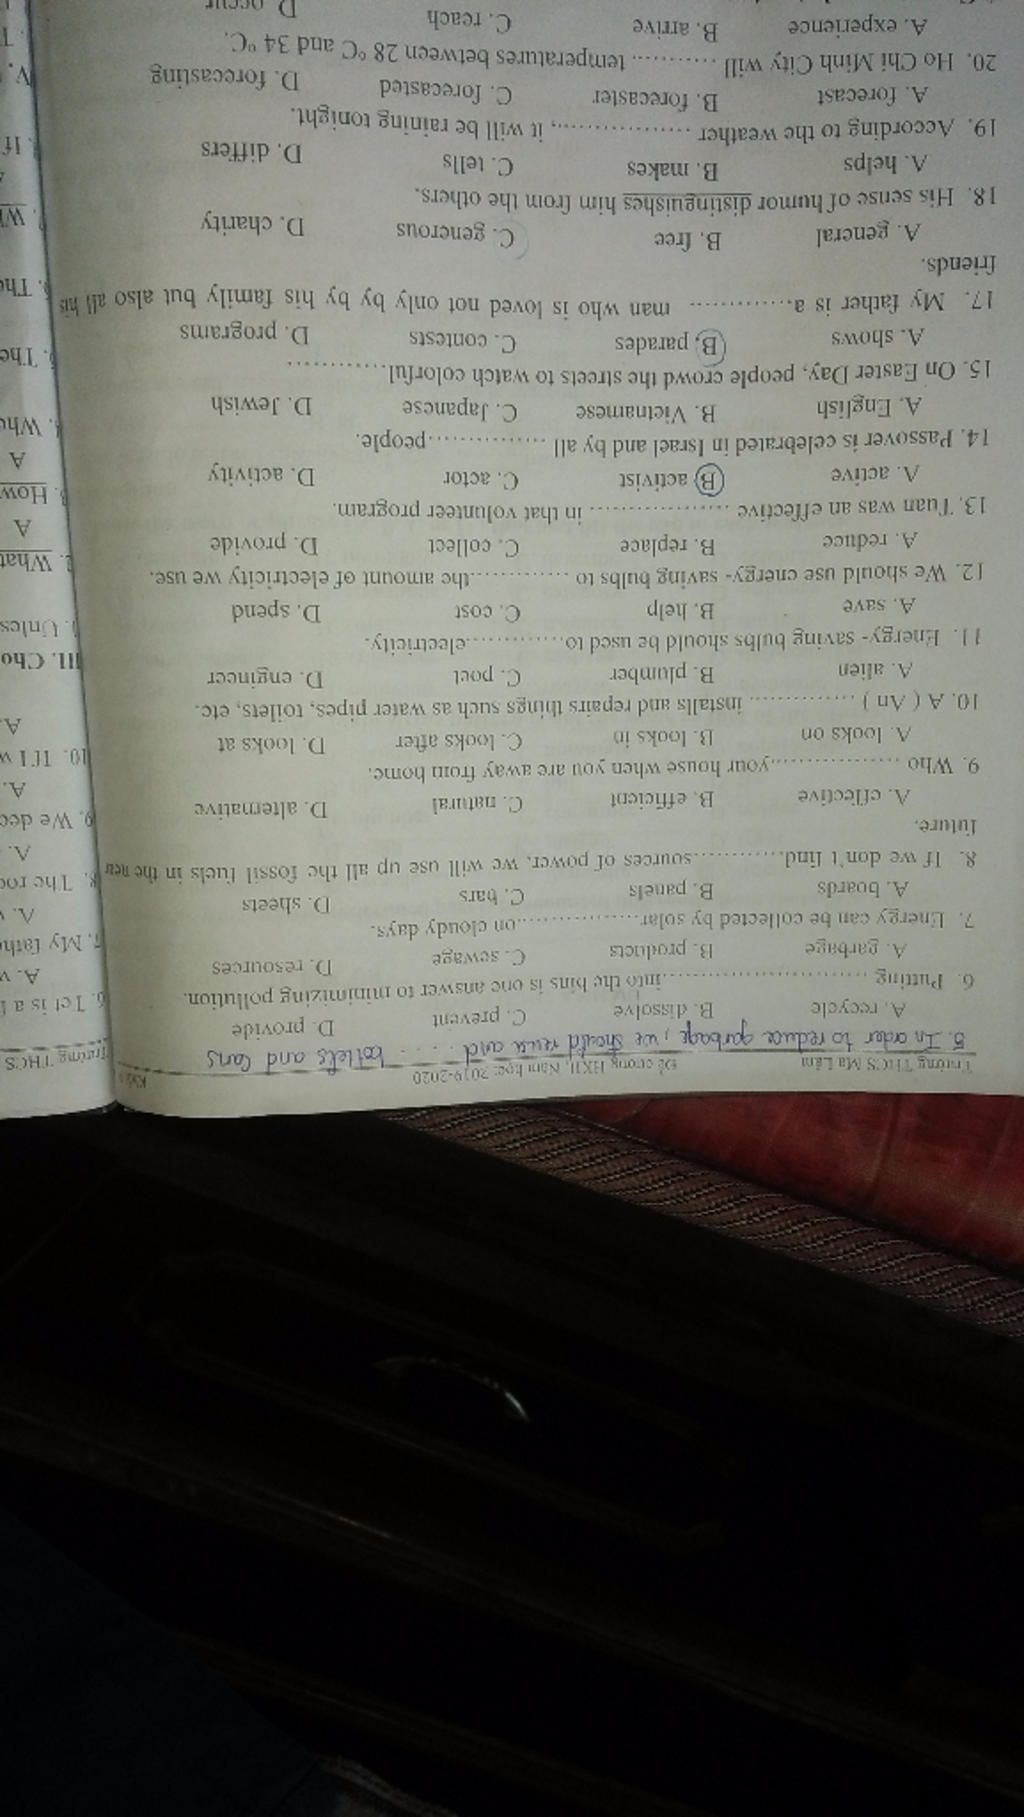 Trường THCS Mạ Lâm Đề cương HKII, Năm học: 2019-2020
5. In order to reduce garbage, we should reuse and .... bottels and cans
A. recycle B. dissolve C. prevent D. provide
6. Putting ........................into the bins is one answer to minimizing pollution.
A. garbage B. products C. sewage D. resources
7. Energy can be collected by solar................on cloudy days.
A. boards B. panels C. bars D. sheets
8. If we don't find............sources of power, we will use up all the fossil fuels in the near
future.
A. effective B. efficient C. natural D. alternative
9. Who ..................your house when you are away from home.
A. looks on B. looks in C. looks after D. looks at
10. A ( An ) .............. installs and repairs things such as water pipes, toilets, etc.
A. alien B. plumber C. poet D. engineer
11. Energy- saving bulbs should be used to..............electricity.
A. save B. help C. cost D. spend
12. We should use energy- saving bulbs to .............the amount of electricity we use.
A. reduce B. replace C. collect D. provide
13. Tuan was an effective .................. in that volunteer program.
A. active B. activist C. actor D. activity
14. Passover is celebrated in Israel and by all ...............people.
A. English B. Vietnamese C. Japanese D. Jewish
15. On Easter Day, people crowd the streets to watch colorful.............
A. shows B. parades C. contests D. programs
17. My father is a............. man who is loved not only by by his family but also all his
friends.
A. general B. free C. generous D. charity
18. His sense of humor distinguishes him from the others.
A. helps B. makes C. tells D. differs
19. According to the weather .................., it will be raining tonight.
A. forecast B. forecaster C. forecasted D. forecasting
20. Ho Chi Minh City will ........... temperatures between 28 °C and 34 °C.
A. experience B. arrive C. reach D. occur
Trường THCS
6. Tet is a
7. My fathe
8. The roo
9. We dec
10. If I w
III. Cho
1. Unles
2. What
A
3. How
A